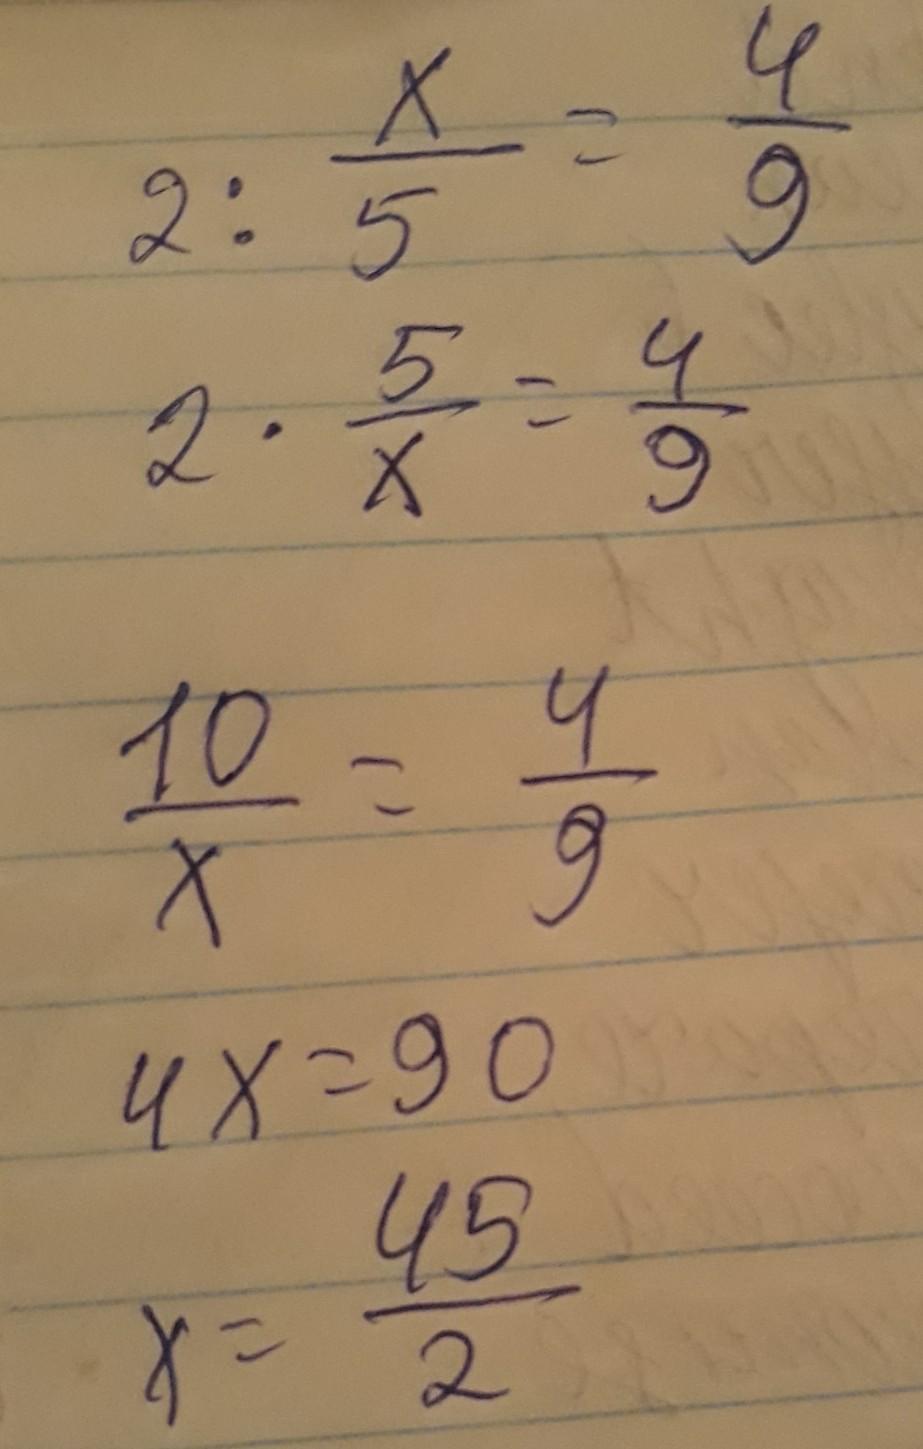 2 : x/5 = 4/9
2 · 5/x = 4/9
10/x = 4/9
4x = 90
x = 45/2